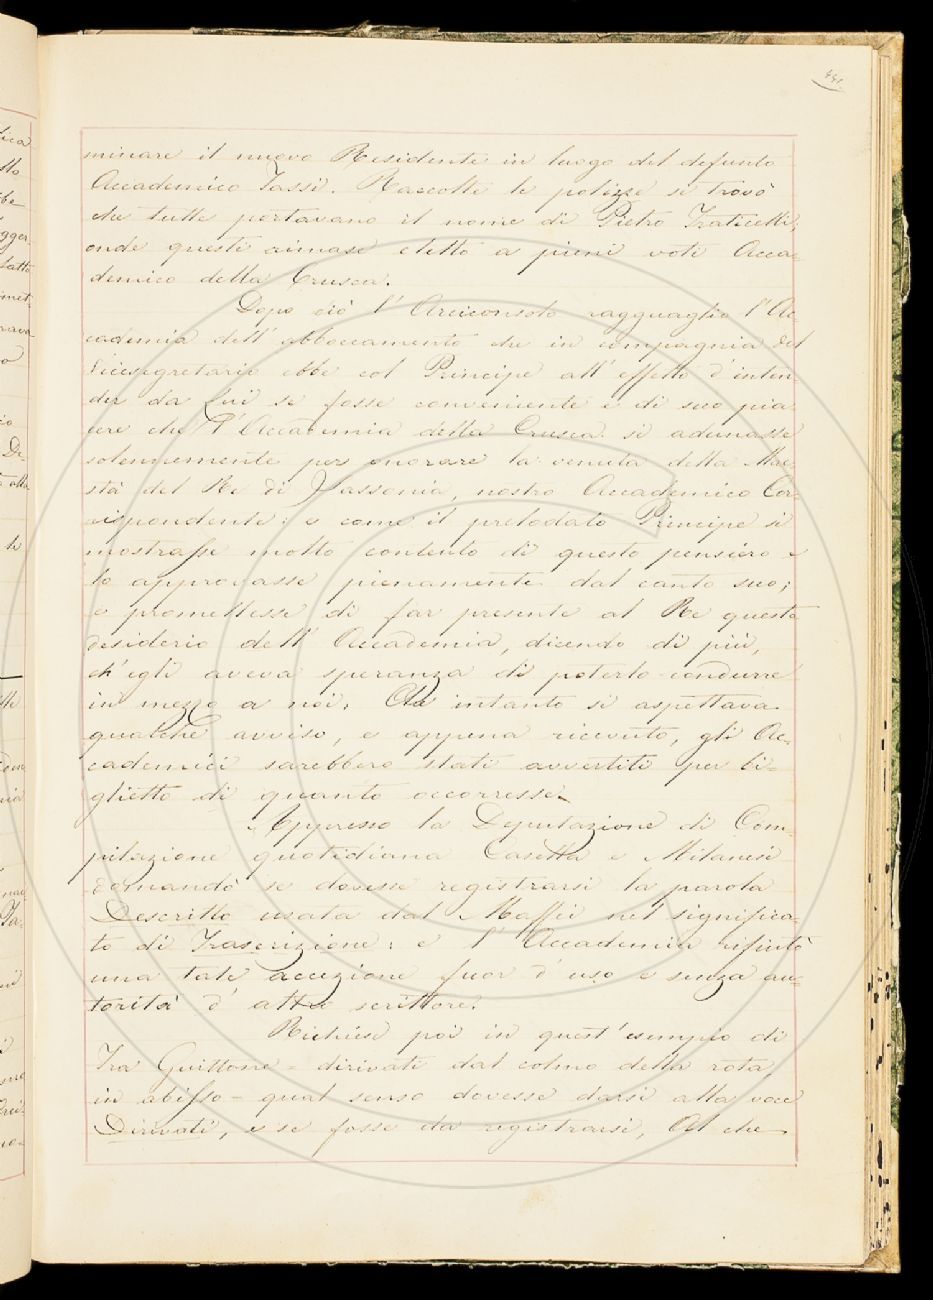 441.
minare il nuovo Residente in luogo del defunto
Accademico Tassi. Raccolte le polizze si trovò
che tutte portavano il nome di Pietro Fraticelli;
onde questi rimase eletto a pieni voti Acca=
demico della Crusca.
Dopo ciò l'Arciconsolo ragguagliò l'Ac=
cademia dell'abboccamento che in compagnia del
Vicesegretario ebbe col Principe all'effetto d'inten=
der da lui se fosse conveniente e di suo pia=
cere che l'Accademia della Crusca si adunasse
solennemente per onorare la venuta della Mae=
stà del Re di Sassonia, nostro Accademico Cor=
rispondente: e come il prelodato Principe si
mostrasse molto contento di questo pensiero e
lo approvasse pienamente dal canto suo;
e promettesse di far presente al Re questo
desiderio dell'Accademia, dicendo di più,
ch'egli aveva speranza di poterlo condurre
in mezzo a noi. Che intanto si aspettava
qualche avviso, e appena ricevuto, gli Ac=
cademici sarebbero stati avvertiti per bi=
glietto di quanto occorresse.
Appresso la Deputazione di Com=
pilazione quotidiana Casella e Milanesi
domandò se dovesse registrarsi la parola
Descritto usata dal Maffei nel significa=
to di Trascrizione: e l'Accademia rifiutò
una tale accezione fuor d'uso e senza au=
torità d'altro scrittore.
Richiese poi in quest'esempio di
Fra Guittone = dirivati dal colmo della rota,
in abisso = qual senso dovesse darsi alla voce
Dirivati, e se fosse da registrarsi, Al che